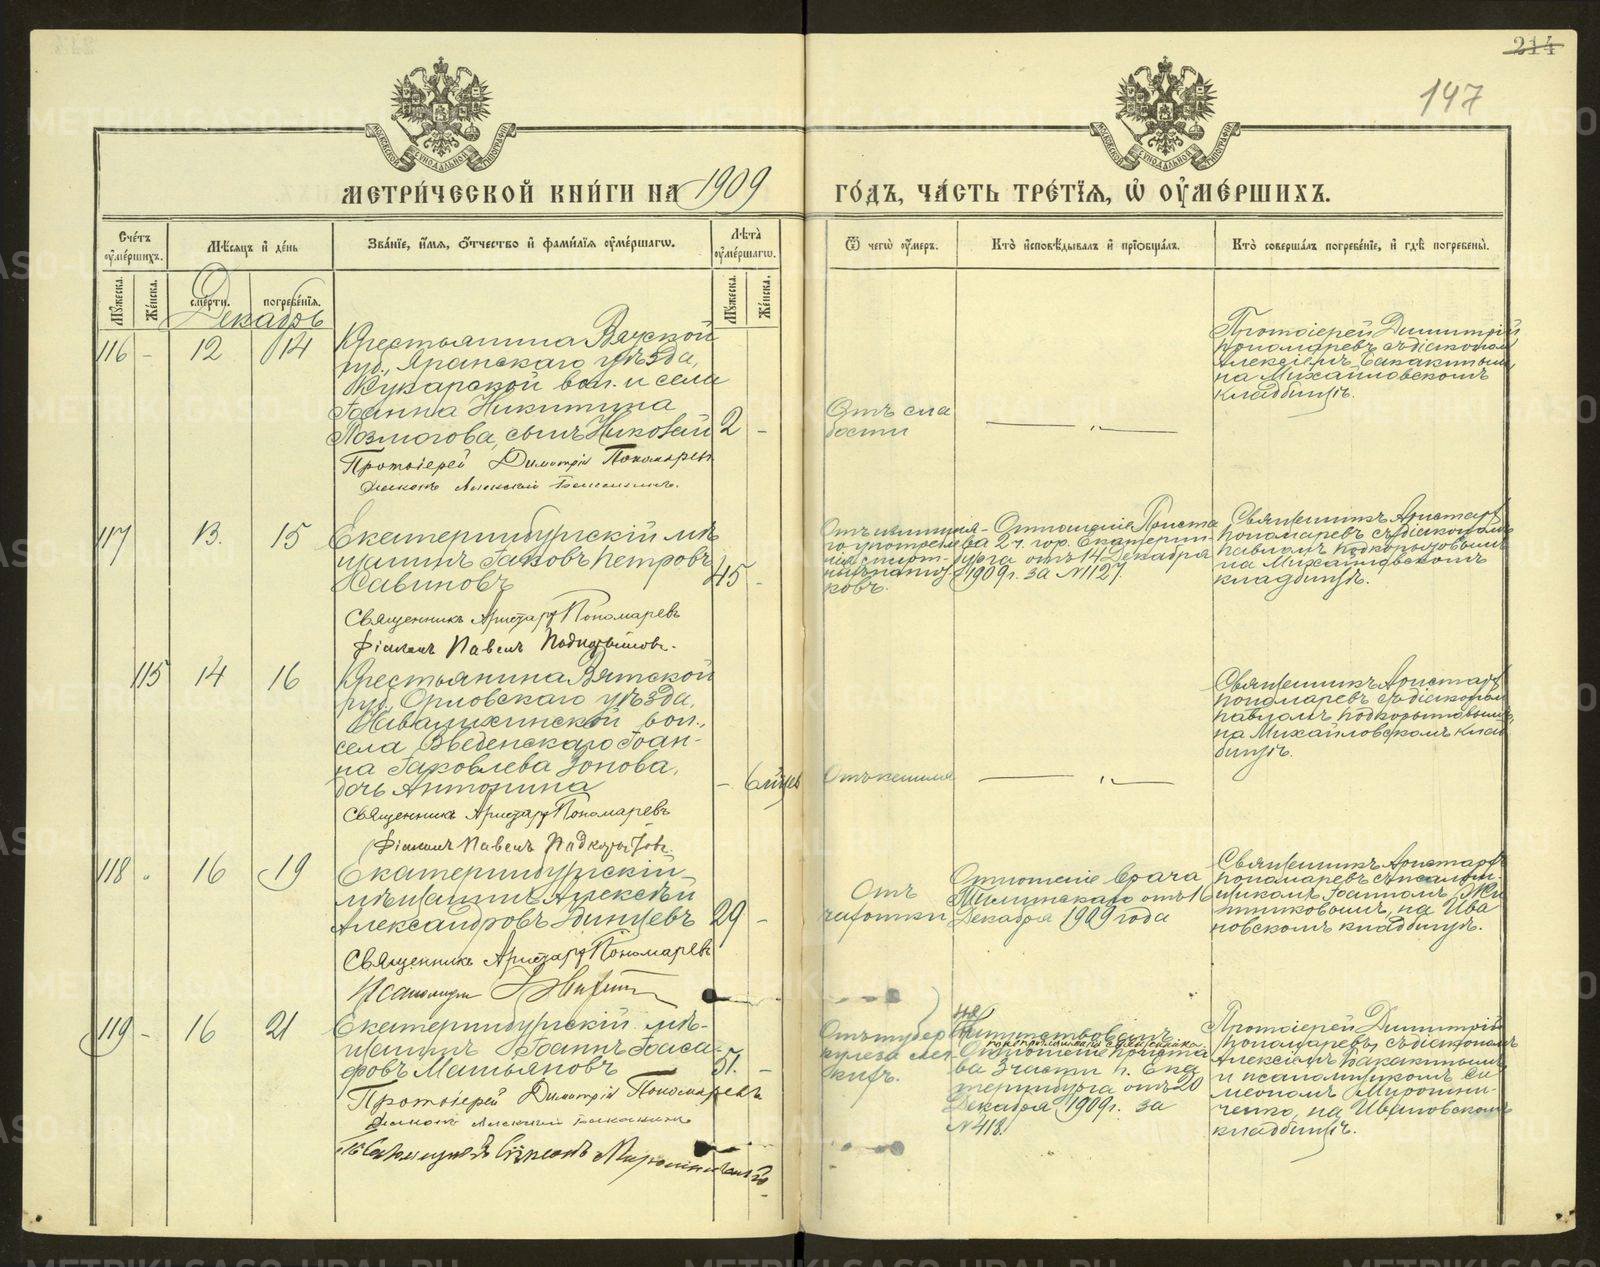 214
147
МЕТРИ́ЧЕСКОЙ КНИ́ГИ НА 1909
ГО́ДЪ, ЧА́СТЬ ТРЕ́ТЇѦ, Ѡ҆ ОУ҆МЕ́РШИХЪ.
Сче́тъ оу҆ме́ршихъ.
Мѣ́сѧцъ и҆ де́нь
Зва́нїе, и҆́мѧ, о҆́тчество и҆ фами́лїѧ оу҆ме́ршагѡ.
Лѣ́та оу҆ме́ршагѡ.
Ѿ чегѡ̀ оу҆́меръ.
Кто̀ и҆сповѣ́дывалъ и҆ прїѡбща́лъ.
Кто̀ соверша́лъ погребе́нїе, и҆ гдѣ̀ погребены̀.
Мꙋ́жеска. Же́нска.
сме́рти. погребе́нїѧ.
Мꙋ́жеска. Же́нска.
Декабрь
116 - 12 14
Крестьянина Вятской
губ., Яранскаго уѣзда,
Кукарской вол. и села
Іоанна Никитина
Позмогова, сынъ Николай 2 -
Протоіерей Димитрій Пономаревъ
Діаконъ Алексій
Отъ сла
бости
— „ —
Протоіерей Димитрій
Пономаревъ съ діакономъ
Алексіемъ
на Михайловскомъ
кладбищѣ.
117 13. 15
Екатеринбургскій мѣ
щанинъ Іаковъ Петровъ
Савиновъ 45 -
Священникъ Аристархъ Пономаревъ
Діаконъ Павелъ Подкорытовъ.
Отъ излишня
го употребле
нія спирт
ныхъ напит
ковъ.
Отношеніе Приста
ва 2 ч. гор. Екатерин-
бурга отъ 14 Декабря
1909 г. за № 1127.
Священникъ Аристархъ
Пономаревъ съ діакономъ
Павломъ Подкорытовымъ
на Михайловскомъ
кладбищѣ.
115 14 16
Крестьянина Вятской
губ., Орловскаго уѣзда,
вол.,
села Введенскаго Іоан-
на Іаковлева Зонова,
дочь Антонина - 6 мѣсяц
Священникъ Аристархъ Пономаревъ
Діаконъ Павелъ Подкорытовъ.
Отъ кашля
— „ —
Священникъ Аристархъ
Пономаревъ съ діакономъ
Павломъ Подкорытовымъ,
на Михайловскомъ клад
бищѣ.
118 „ 16 19
Екатеринбургскій
мѣщанинъ Алексѣй
Александровъ Одинцевъ 29 -
Священникъ Аристархъ Пономаревъ
Псаломщикъ
Отъ
чахотки
Отношеніе врача
отъ 16
Декабря 1909 года
Священникъ Аристархъ
Пономаревъ съ псалом-
щикомъ Іоанномъ
на Ива
новскомъ кладбищѣ.
119 - 16 21
Екатеринбургскій мѣ-
щанинъ Іоаннъ Іоаса-
фовъ Матьяновъ 51. -
Протоіерей Димитрій Пономаревъ
Діаконъ Алексій
Псаломщикъ Симеонъ Мирошниченко
Отъ тубер
кулеза лег
кихъ.
не
Напутствованъ
Отношеніе Приста
ва 3 части г. Ека
теринбурга отъ 20
Декабря 1909 г. за
№ 418.
Протоіерей Димитрій
Пономаревъ съ діакономъ
Алексіемъ
и псаломщикомъ Си
меономъ Мирошни-
ченко, на Ивановскомъ
кладбищѣ.